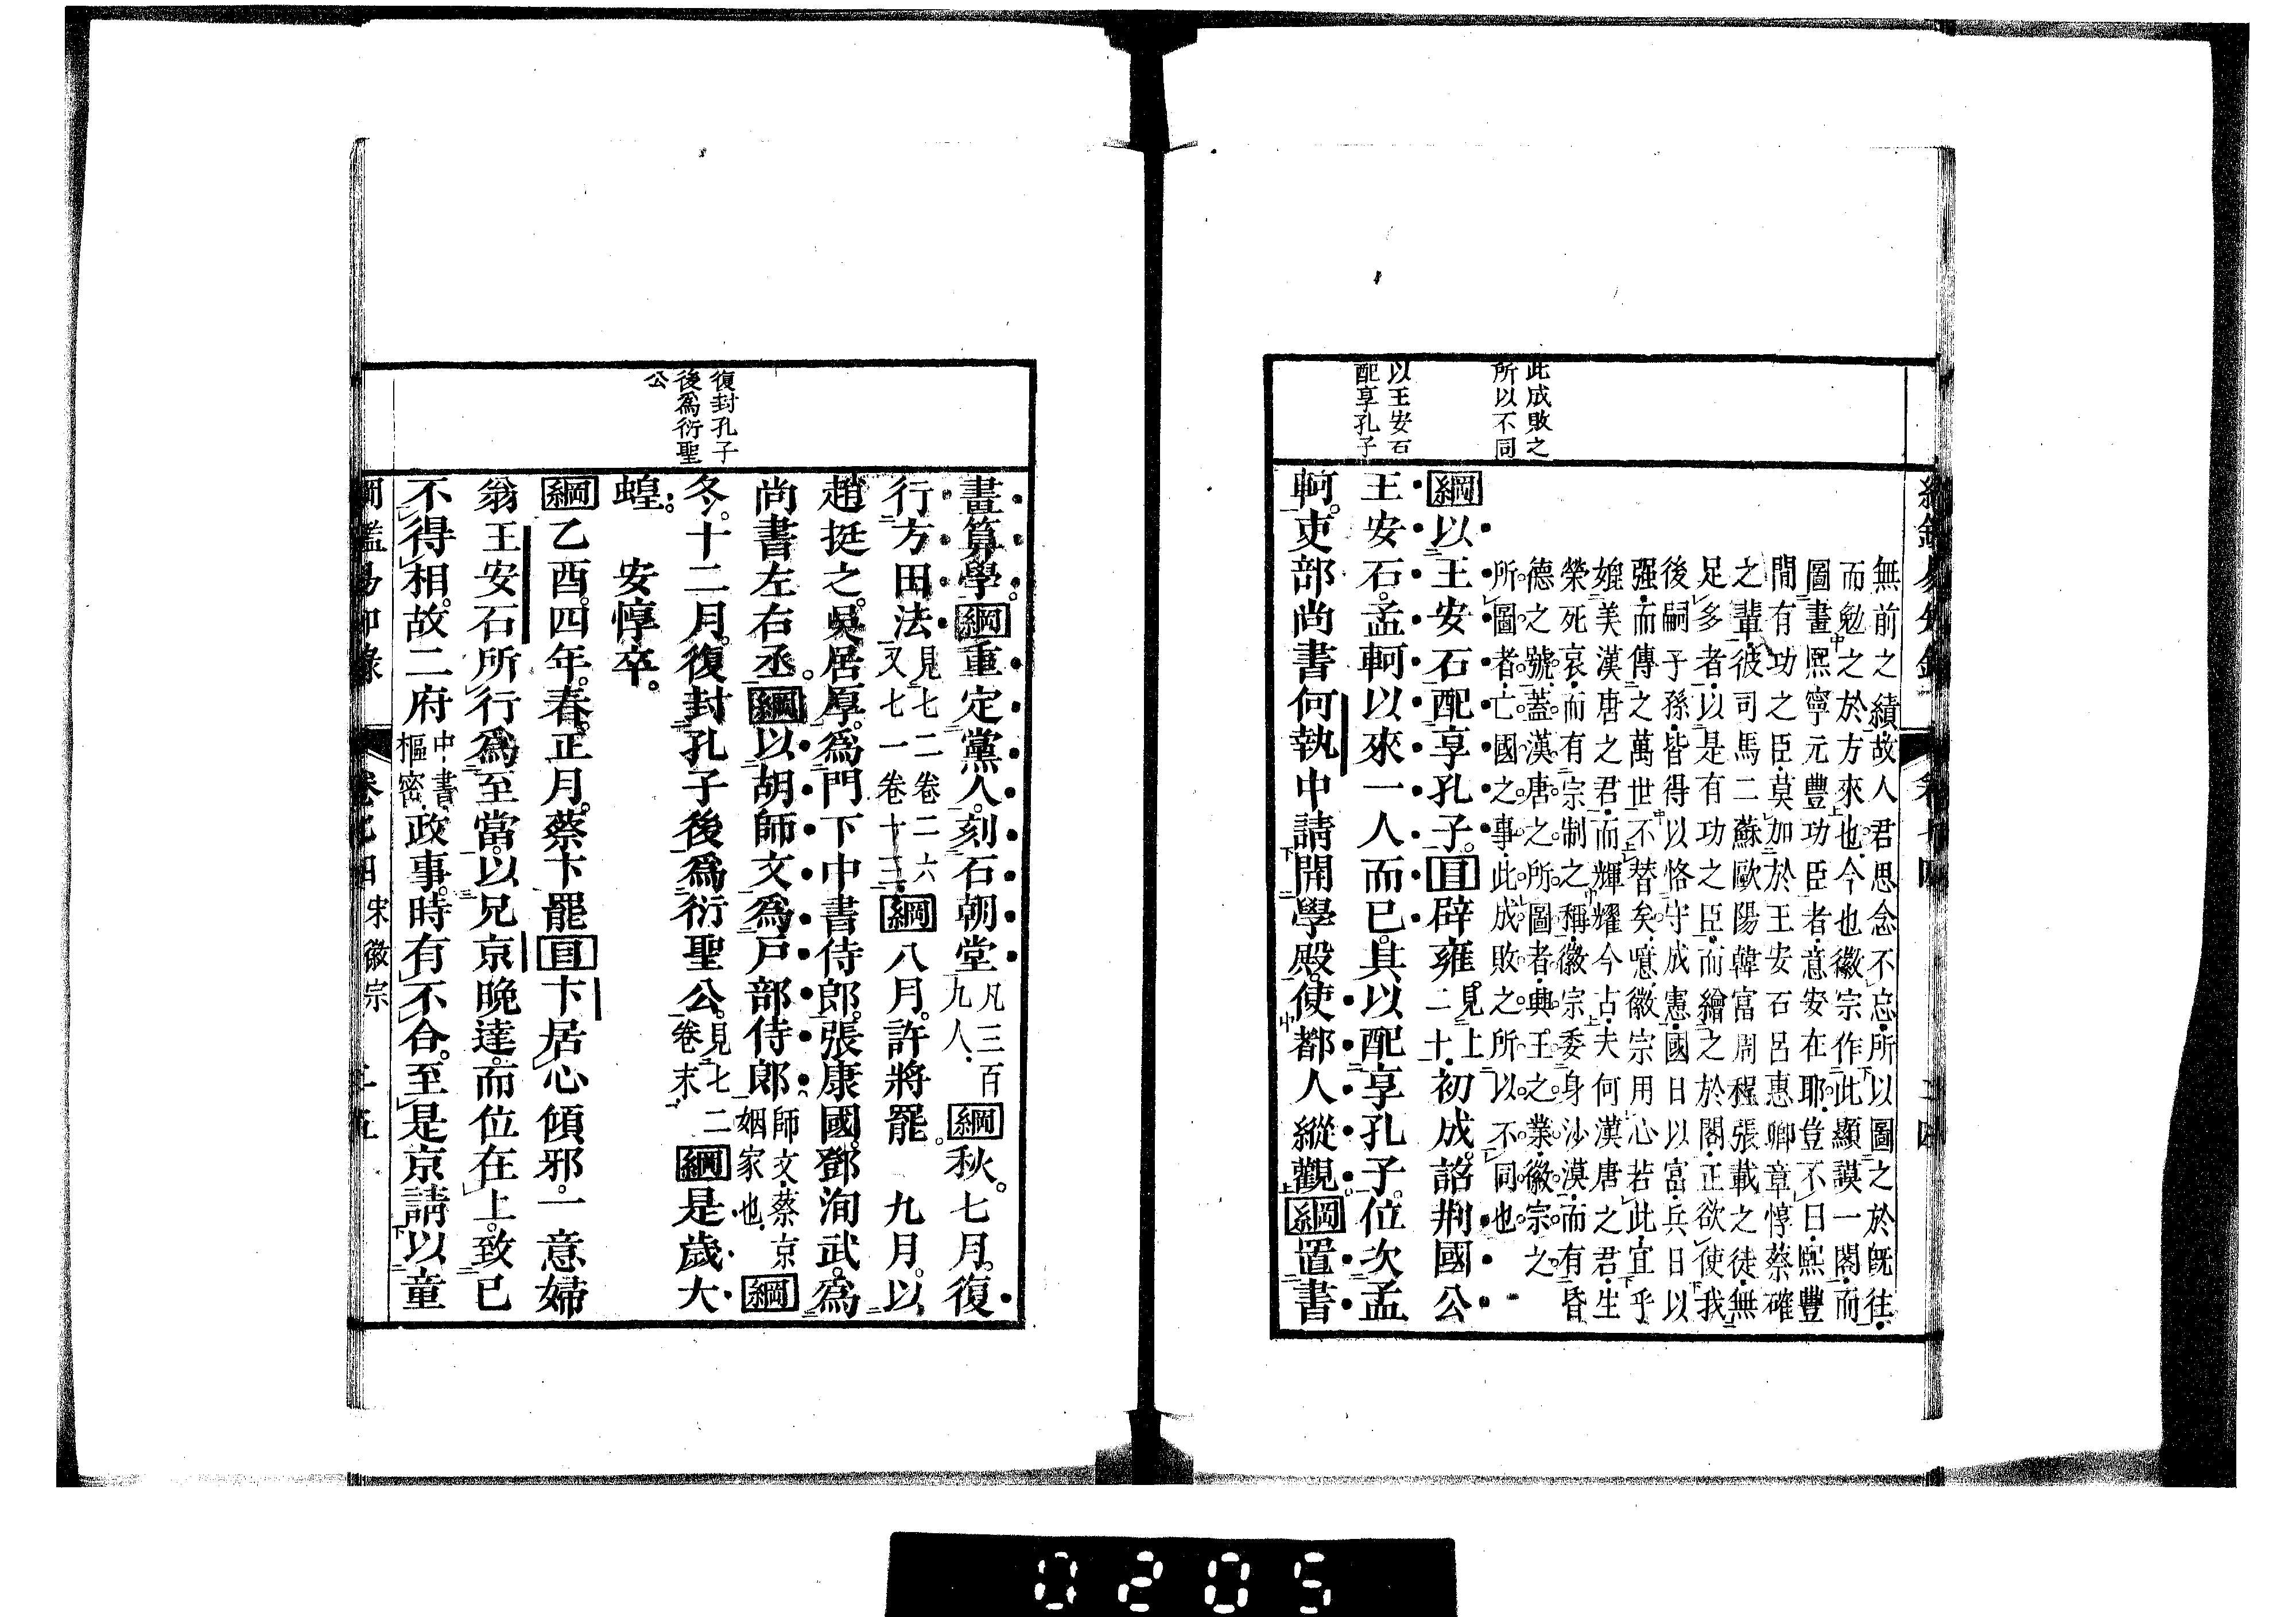 此成敗之
所以不同
以王安石
配享孔子
無前之績故人君思念不忘所以圖之於既往
而勉之於方來也今也徽宗作此顯謨一閣而
圖畫熙寧元豐功臣者意安在耶豈不曰熙豐
間有功之臣莫加於王安石呂惠卿章惇蔡確
之輩彼司馬二蘇歐陽韓富周程張載之徒無
足多者以是有功之臣而繪之於閣正欲使我
後嗣子孫皆得以恪守成憲國日以富兵日以
强而傳之萬世不替矣噫徽宗用心若此宜乎
媲美漢唐之君而輝耀今古夫何漢唐之君生
榮死哀而有宗制之稱徽宗委身沙漠而有昏
德之號蓋漢唐之所圖者典王之業徽宗之
所圖者亡國之事此成敗之所以不同也
綱以王安石配享孔子目辟雍見上二十初成詔荆國公
王安石孟軻以來一人而已其以配享孔子位次孟
軻吏部尚書何執中請開學殿使都人縱觀綱置書
復封孔子
後為衍聖
公
畫算學綱重定黨人刻石朝堂凡三百九人綱秋七月復
行方田法見七二卷二六又七一卷十三綱八月許將罷 九月以
趙挺之吳居厚為門下中書侍郎張康國鄧洵武為
尚書左右丞綱以胡師文為戶部侍郎師文蔡京姻家也綱
冬十二月復封孔子後為衍聖公見七二卷末綱是歲大
蝗 安惇卒
綱乙酉四年春正月蔡卞罷目卞居心傾邪一意婦
翁王安石所行為至當以兄京晚達而位在上致已
不得相故二府中書樞密政事時有不合至是京請以童
宋徽宗